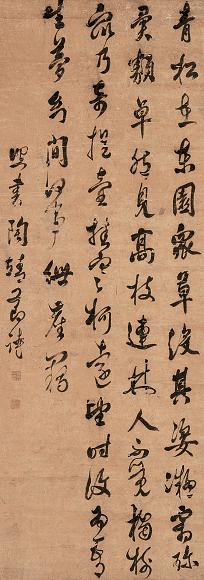 青松在東園眾草沒其姿凝霜殄
異類卓然見高枝連林人不覺獨樹
眾乃奇提壺撫寒柯遠望時復為吾
生夢幻間何事紲塵羈
書陶靖節詩